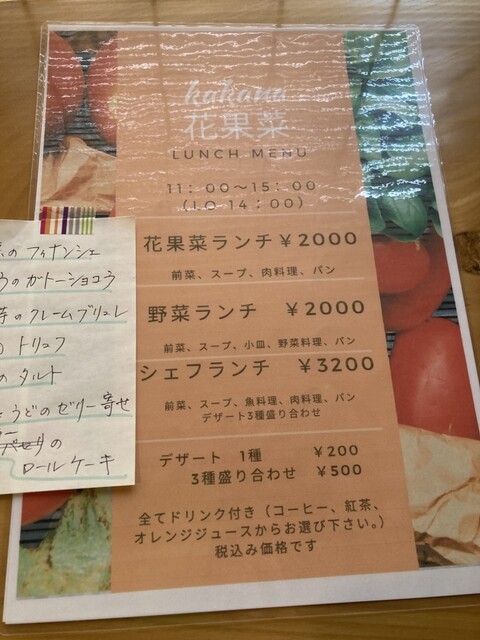 kakana
花果菜
LUNCH MENU
11：00〜15：00
（LO 14：00）
花果菜ランチ ￥2000
前菜、スープ、肉料理、パン
野菜ランチ ￥2000
前菜、スープ、小皿、野菜料理、パン
シェフランチ ￥3200
前菜、スープ、魚料理、肉料理、パン
デザート3種盛り合わせ
デザート 1種 ￥200
3種盛り合わせ ￥500
全てドリンク付き（コーヒー、紅茶、
オレンジジュースからお選び下さい。）
税込み価格です
のフィナンシェ
のガトーショコラ
芋のクレームブリュレ
トリュフ
のタルト
うどのゼリー寄せ
の
ロールケーキ